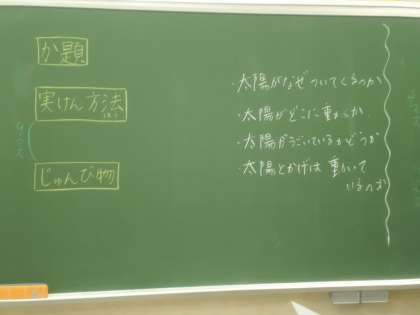 か題
実けん方法
じゅんび物
・太陽がなぜついてくるのか
・太陽がどこに動くか
・太陽がうごいているかどうか
・太陽とかげは動いて
いるのか